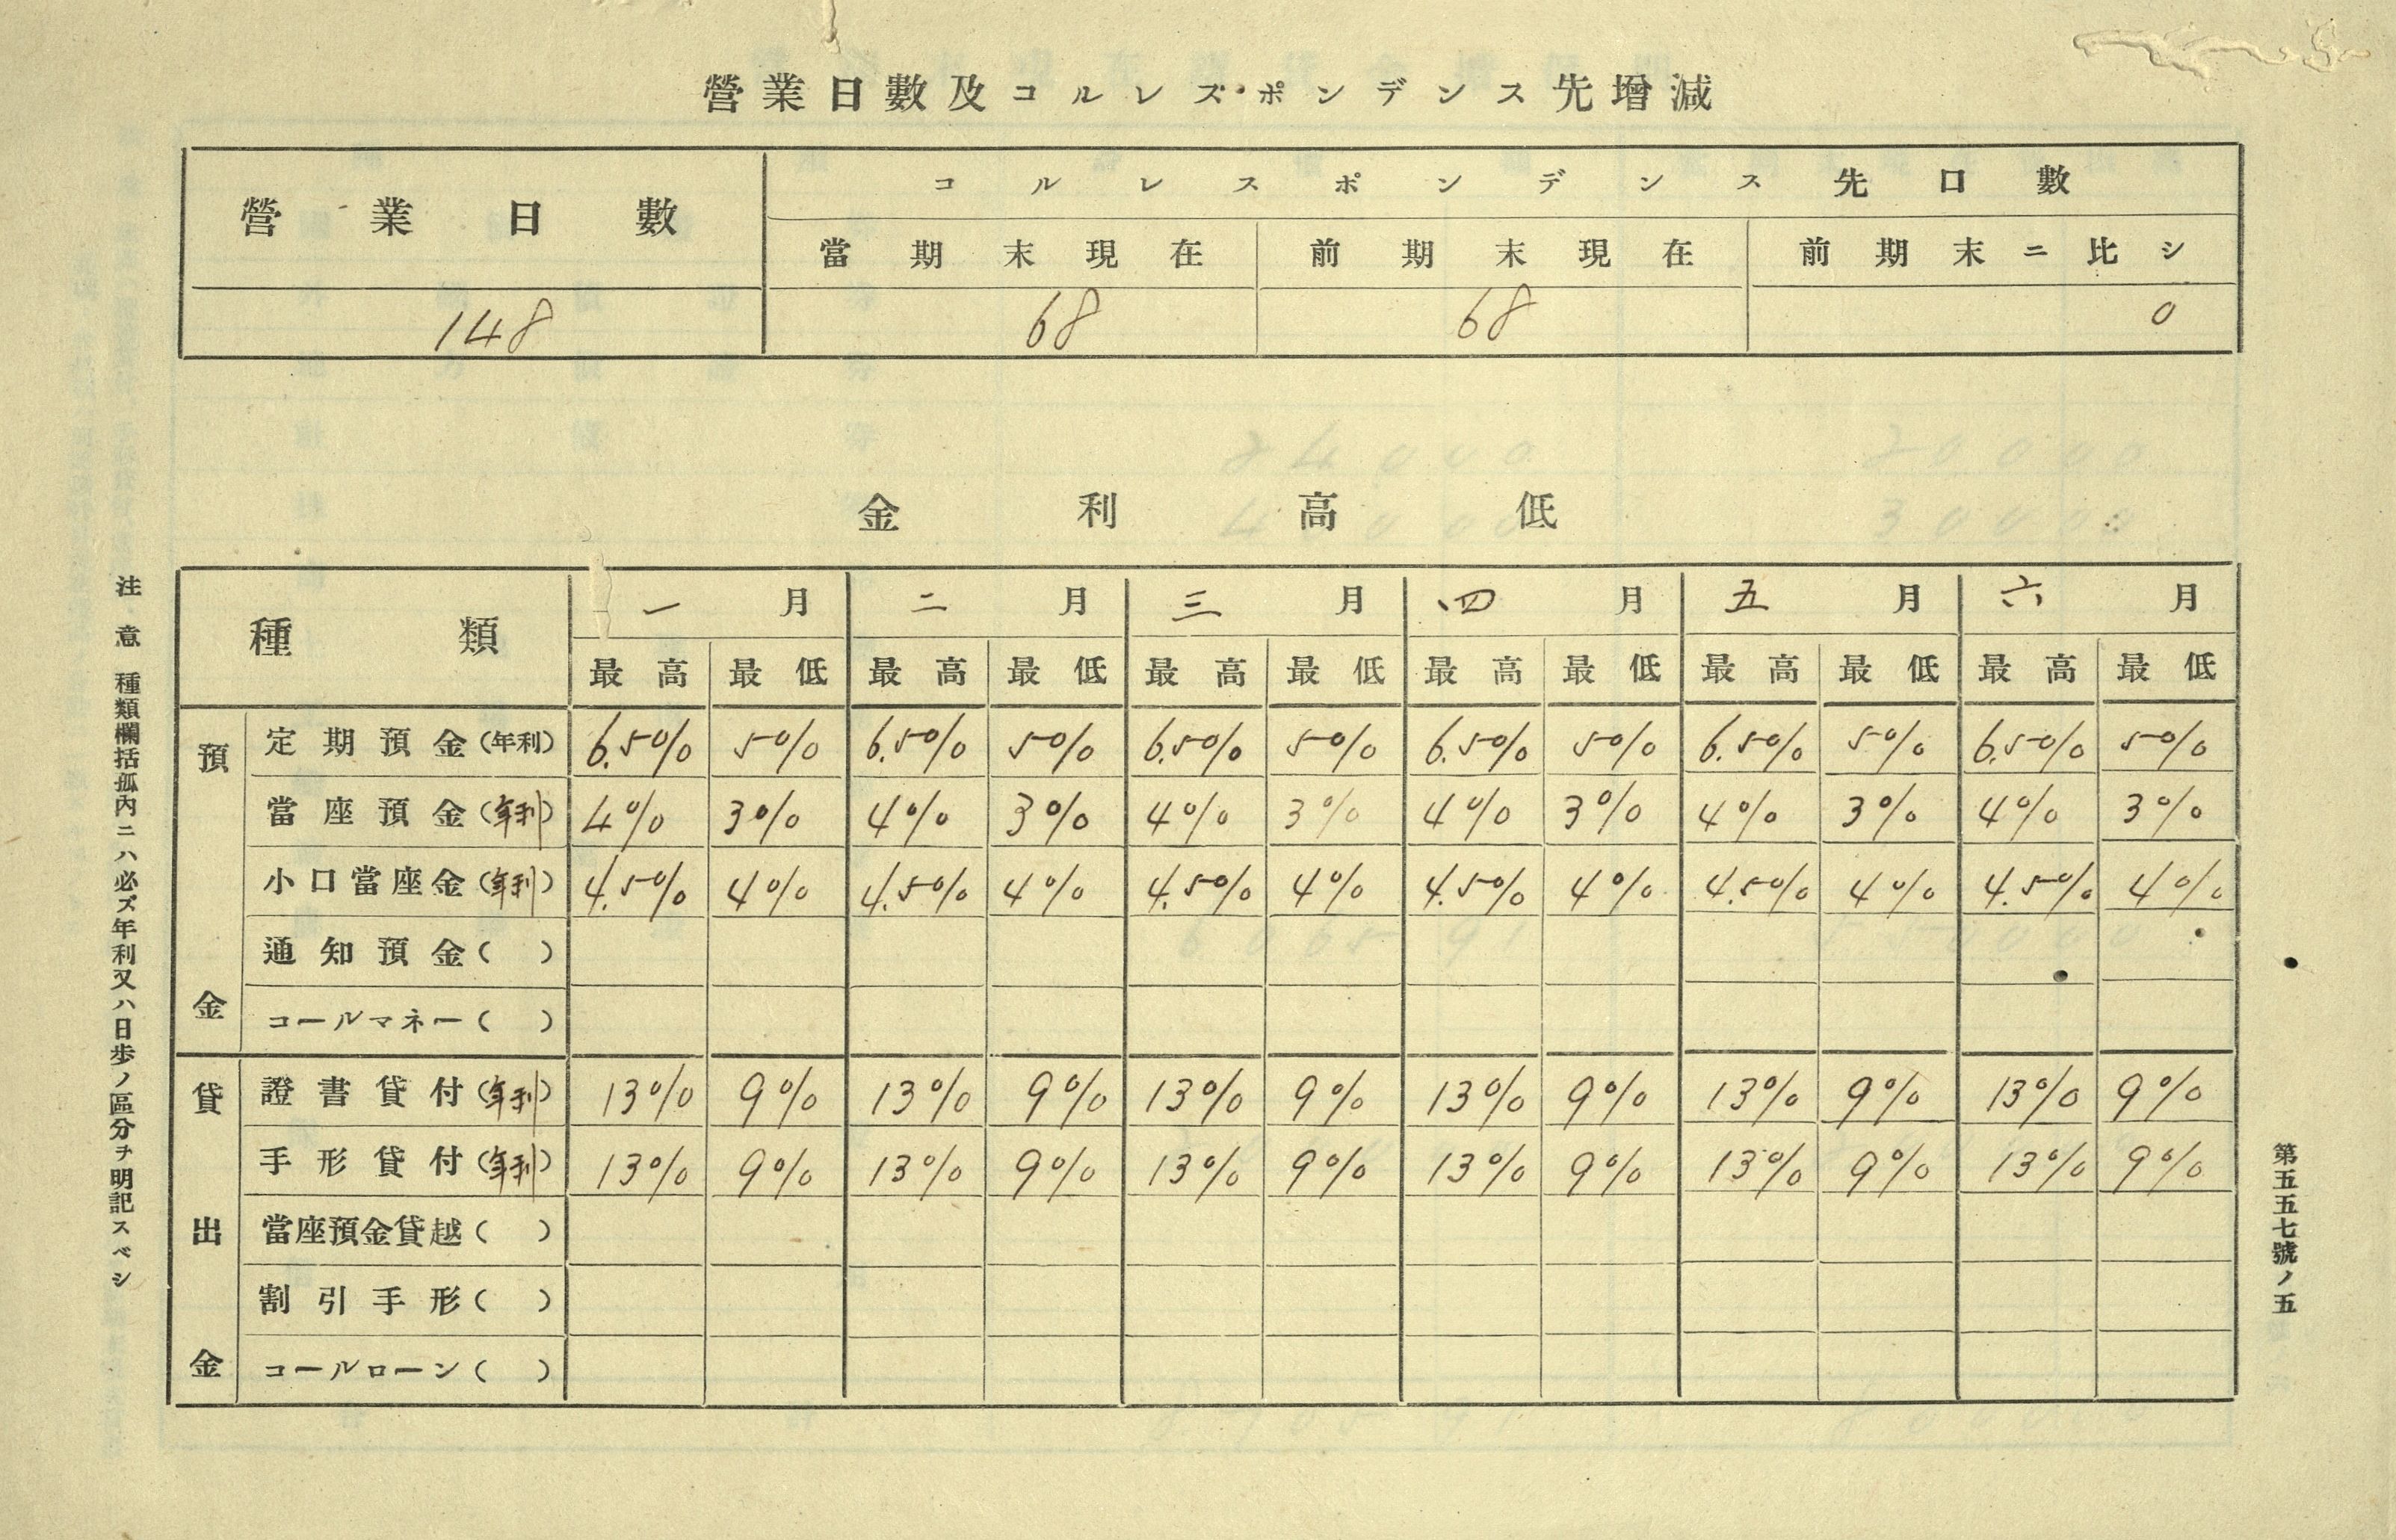 營業日數及コルレズ・ポンデンス先增減
營業日數
コルレスポンデンス先口數
當期末現在 前期末現在 前期末ニ比シ
148 68 68 0
金利高低
種類 一月 二月 三月 四月 五月 六月
最高 最低 最高 最低 最高 最低 最高 最低 最高 最低 最高 最低
預金
定期預金(年利) 6.5% 5% 6.5% 5% 6.5% 5% 6.5% 5% 6.5% 5% 6.5% 5%
當座預金(年利) 4% 3% 4% 3% 4% 3% 4% 3% 4% 3% 4% 3%
小口當座金(年利) 4.5% 4% 4.5% 4% 4.5% 4% 4.5% 4% 4.5% 4% 4.5% 4%
通知預金( )
コールマネー( )
貸出金
證書貸付(年利) 13% 9% 13% 9% 13% 9% 13% 9% 13% 9% 13% 9%
手形貸付(年利) 13% 9% 13% 9% 13% 9% 13% 9% 13% 9% 13% 9%
當座預金貸越( )
割引手形( )
コールローン( )
注意 種類欄括孤內ニハ必ズ年利又ハ日歩ノ區分ヲ明記スベシ
第五五七號ノ五